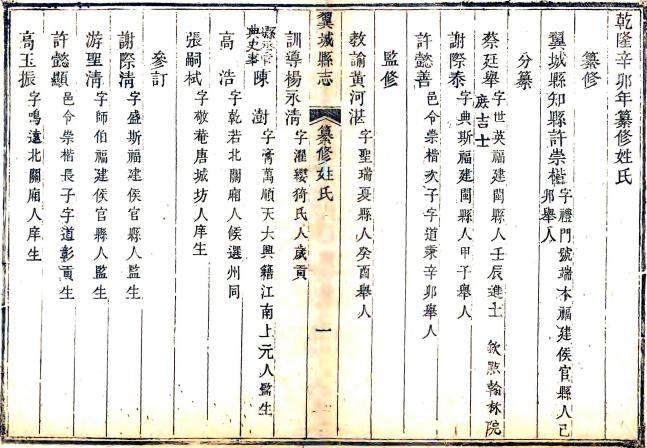 乾隆辛卯年纂修姓氏
纂修
翼城縣知縣許崇楷字禮門號端木福建侯官縣人己卯舉人
分纂
蔡廷舉字世英福建閩縣人壬辰進士 欽點翰林院庶吉士
謝際泰字典斯福建閩縣人甲子舉人
許懿善邑令崇楷次子字道秉辛卯舉人
監修
教諭黃河湛字聖瑞夏縣人癸酉舉人
翼城縣志
纂修姓氏
一
訓導楊永清字濯纓猗氏人歲貢
縣丞管典史事陳澍字霄萬順天大興籍江南上元人監生
高浩字乾若北關廂人候選州同
張嗣栻字敬菴唐城坊人庠生
參訂
謝際清字盛斯福建侯官縣人監生
游聖清字師伯福建侯官縣人監生
許懿顯邑令崇楷長子字道彰貢生
高玉振字鳴遠北關廂人庠生